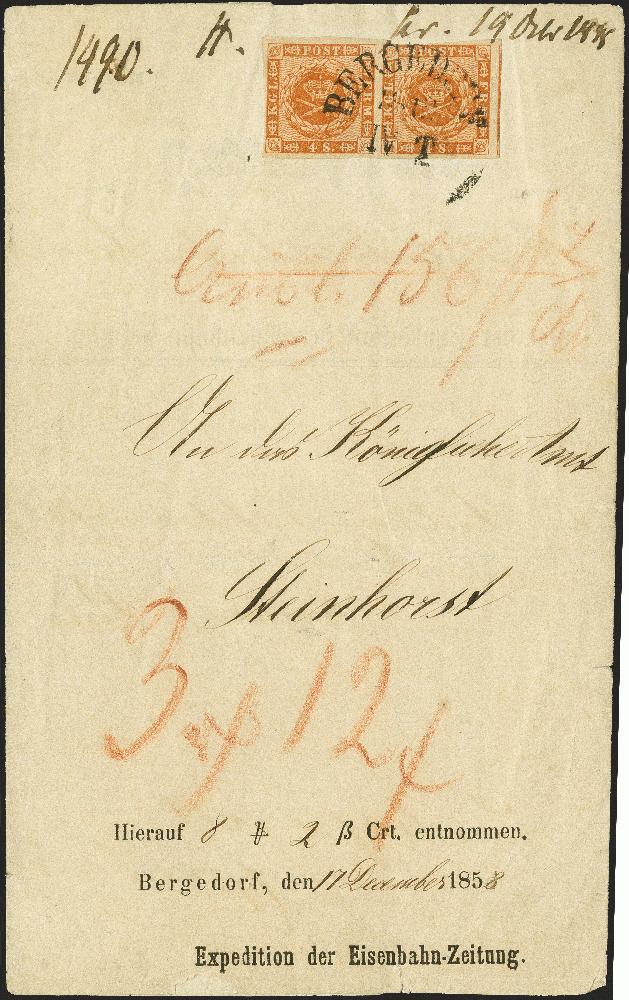 1490.
19
POST POST
BERGEDORF
4 S. S.
IV T
156
An das Königliche Amt
Steinhorst
3 12
Hierauf 8 2 β Crt. entnommen.
Bergedorf, den 17 December 1858
Expedition der Eisenbahn-Zeitung.